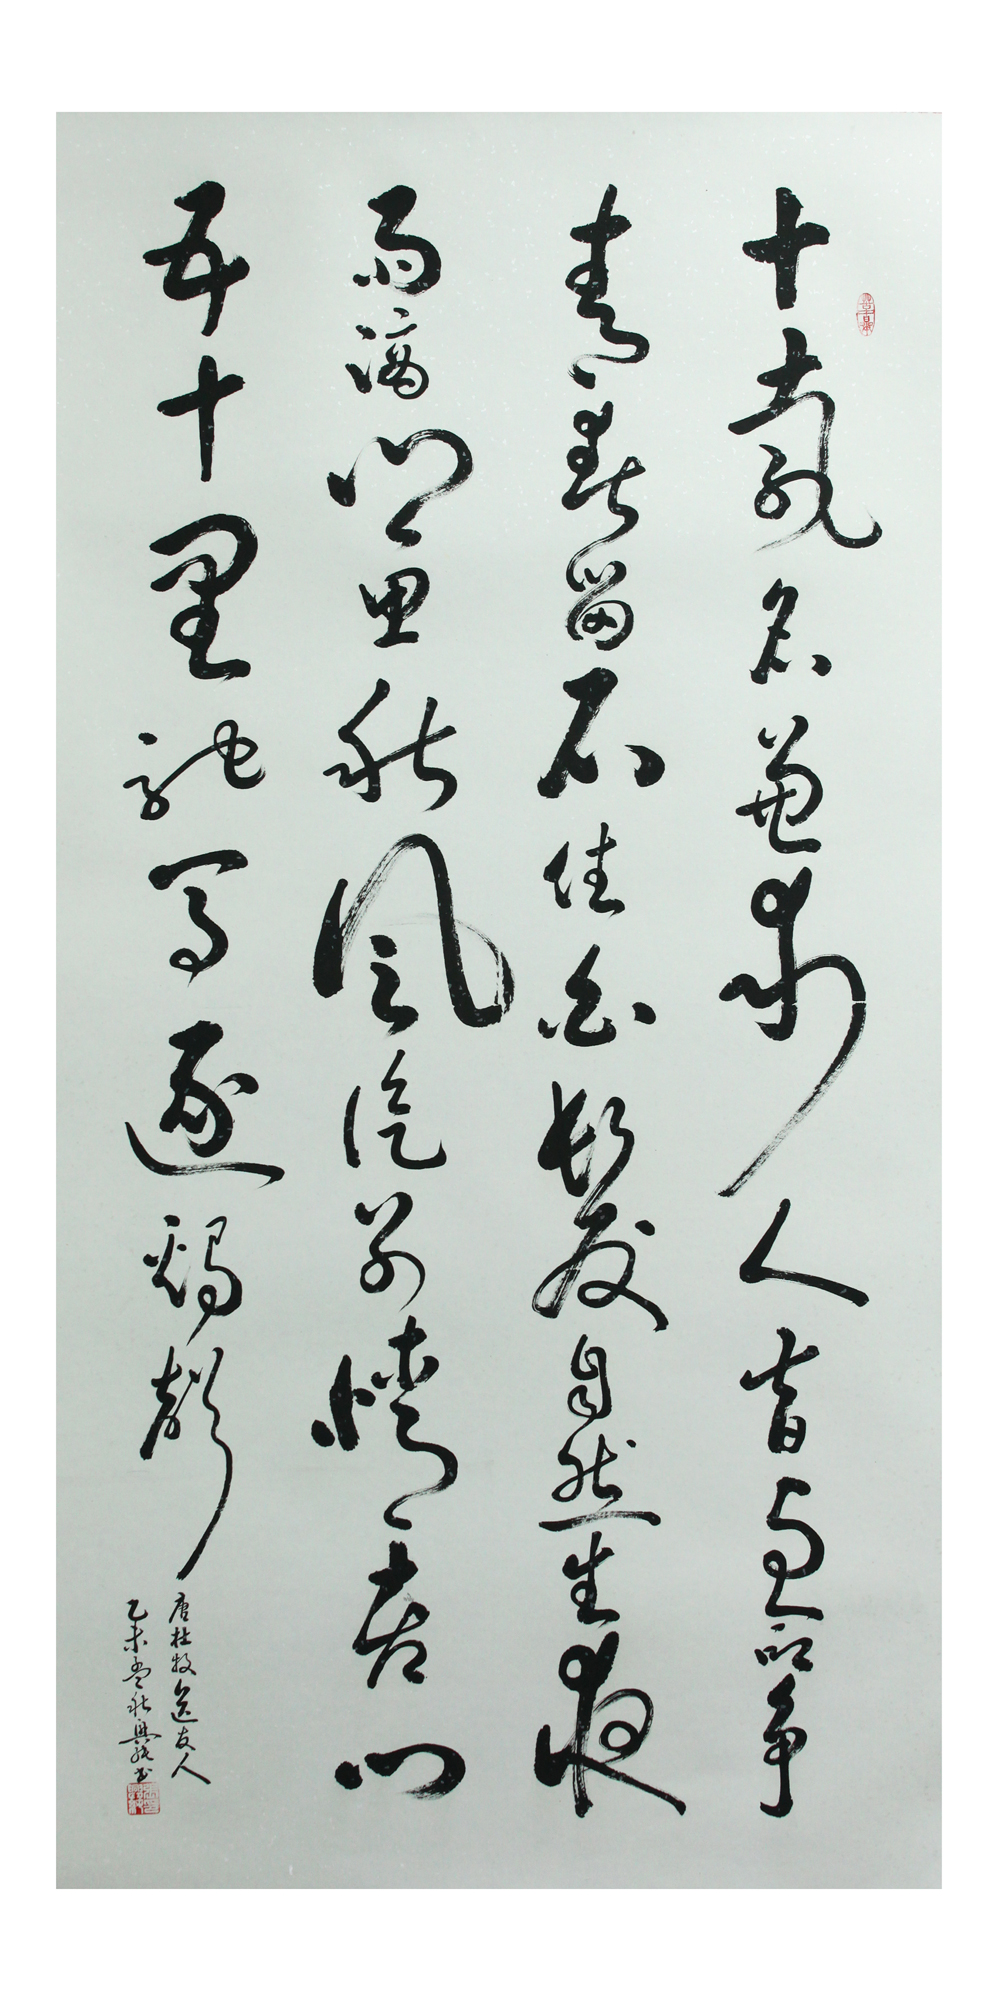 十載名兼利人皆與命争
青春留不住白髮自然生夜
雨滴鄉思秋風從别情都門
五十里馳馬逐鷄聲
唐杜牧送友人
乙未孟秋興书